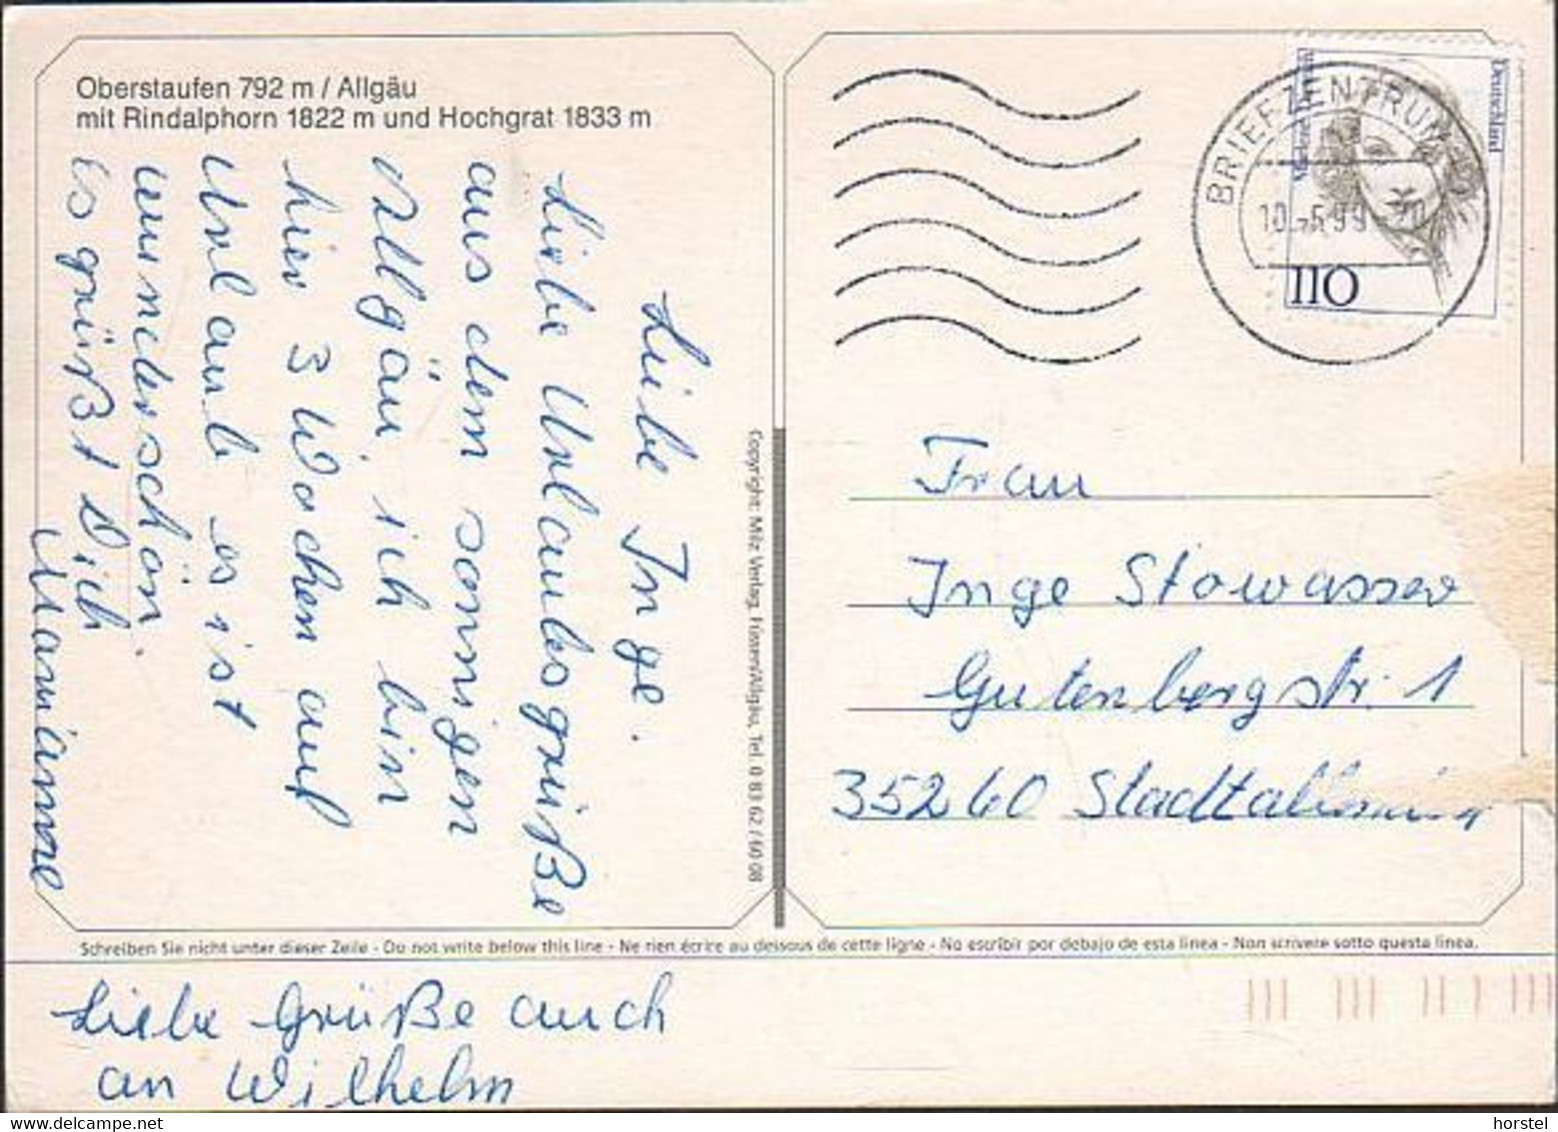 Oberstaufen 792 m / Allgäu
mit Rindalphorn 1822 m und Hochgrat 1833 m
Liebe Inge.
Liebe Urlaubsgrüße
aus dem sonnigen
Allgäu, ich bin
hier 3 Wochen auf
Urlaub es ist
wunderschön.
Es grüßt Dich
Marianne
Copyright: Milz Verlag, Füssen/Allgäu, Tel. 0 83 62 / 60 08
BRIEFZENTRUM
10.-5.99
Deutschland
110
Frau
Inge Stowasser
Gutenbergstr. 1
35260 Stadtallendorf
Schreiben Sie nicht unter dieser Zeile - Do not write below this line - Ne rien écrire au dessous de cette ligne - No escribir por debajo de esta línea - Non scrivere sotto questa linea.
Liebe Grüße auch
an Wilhelm
horstel